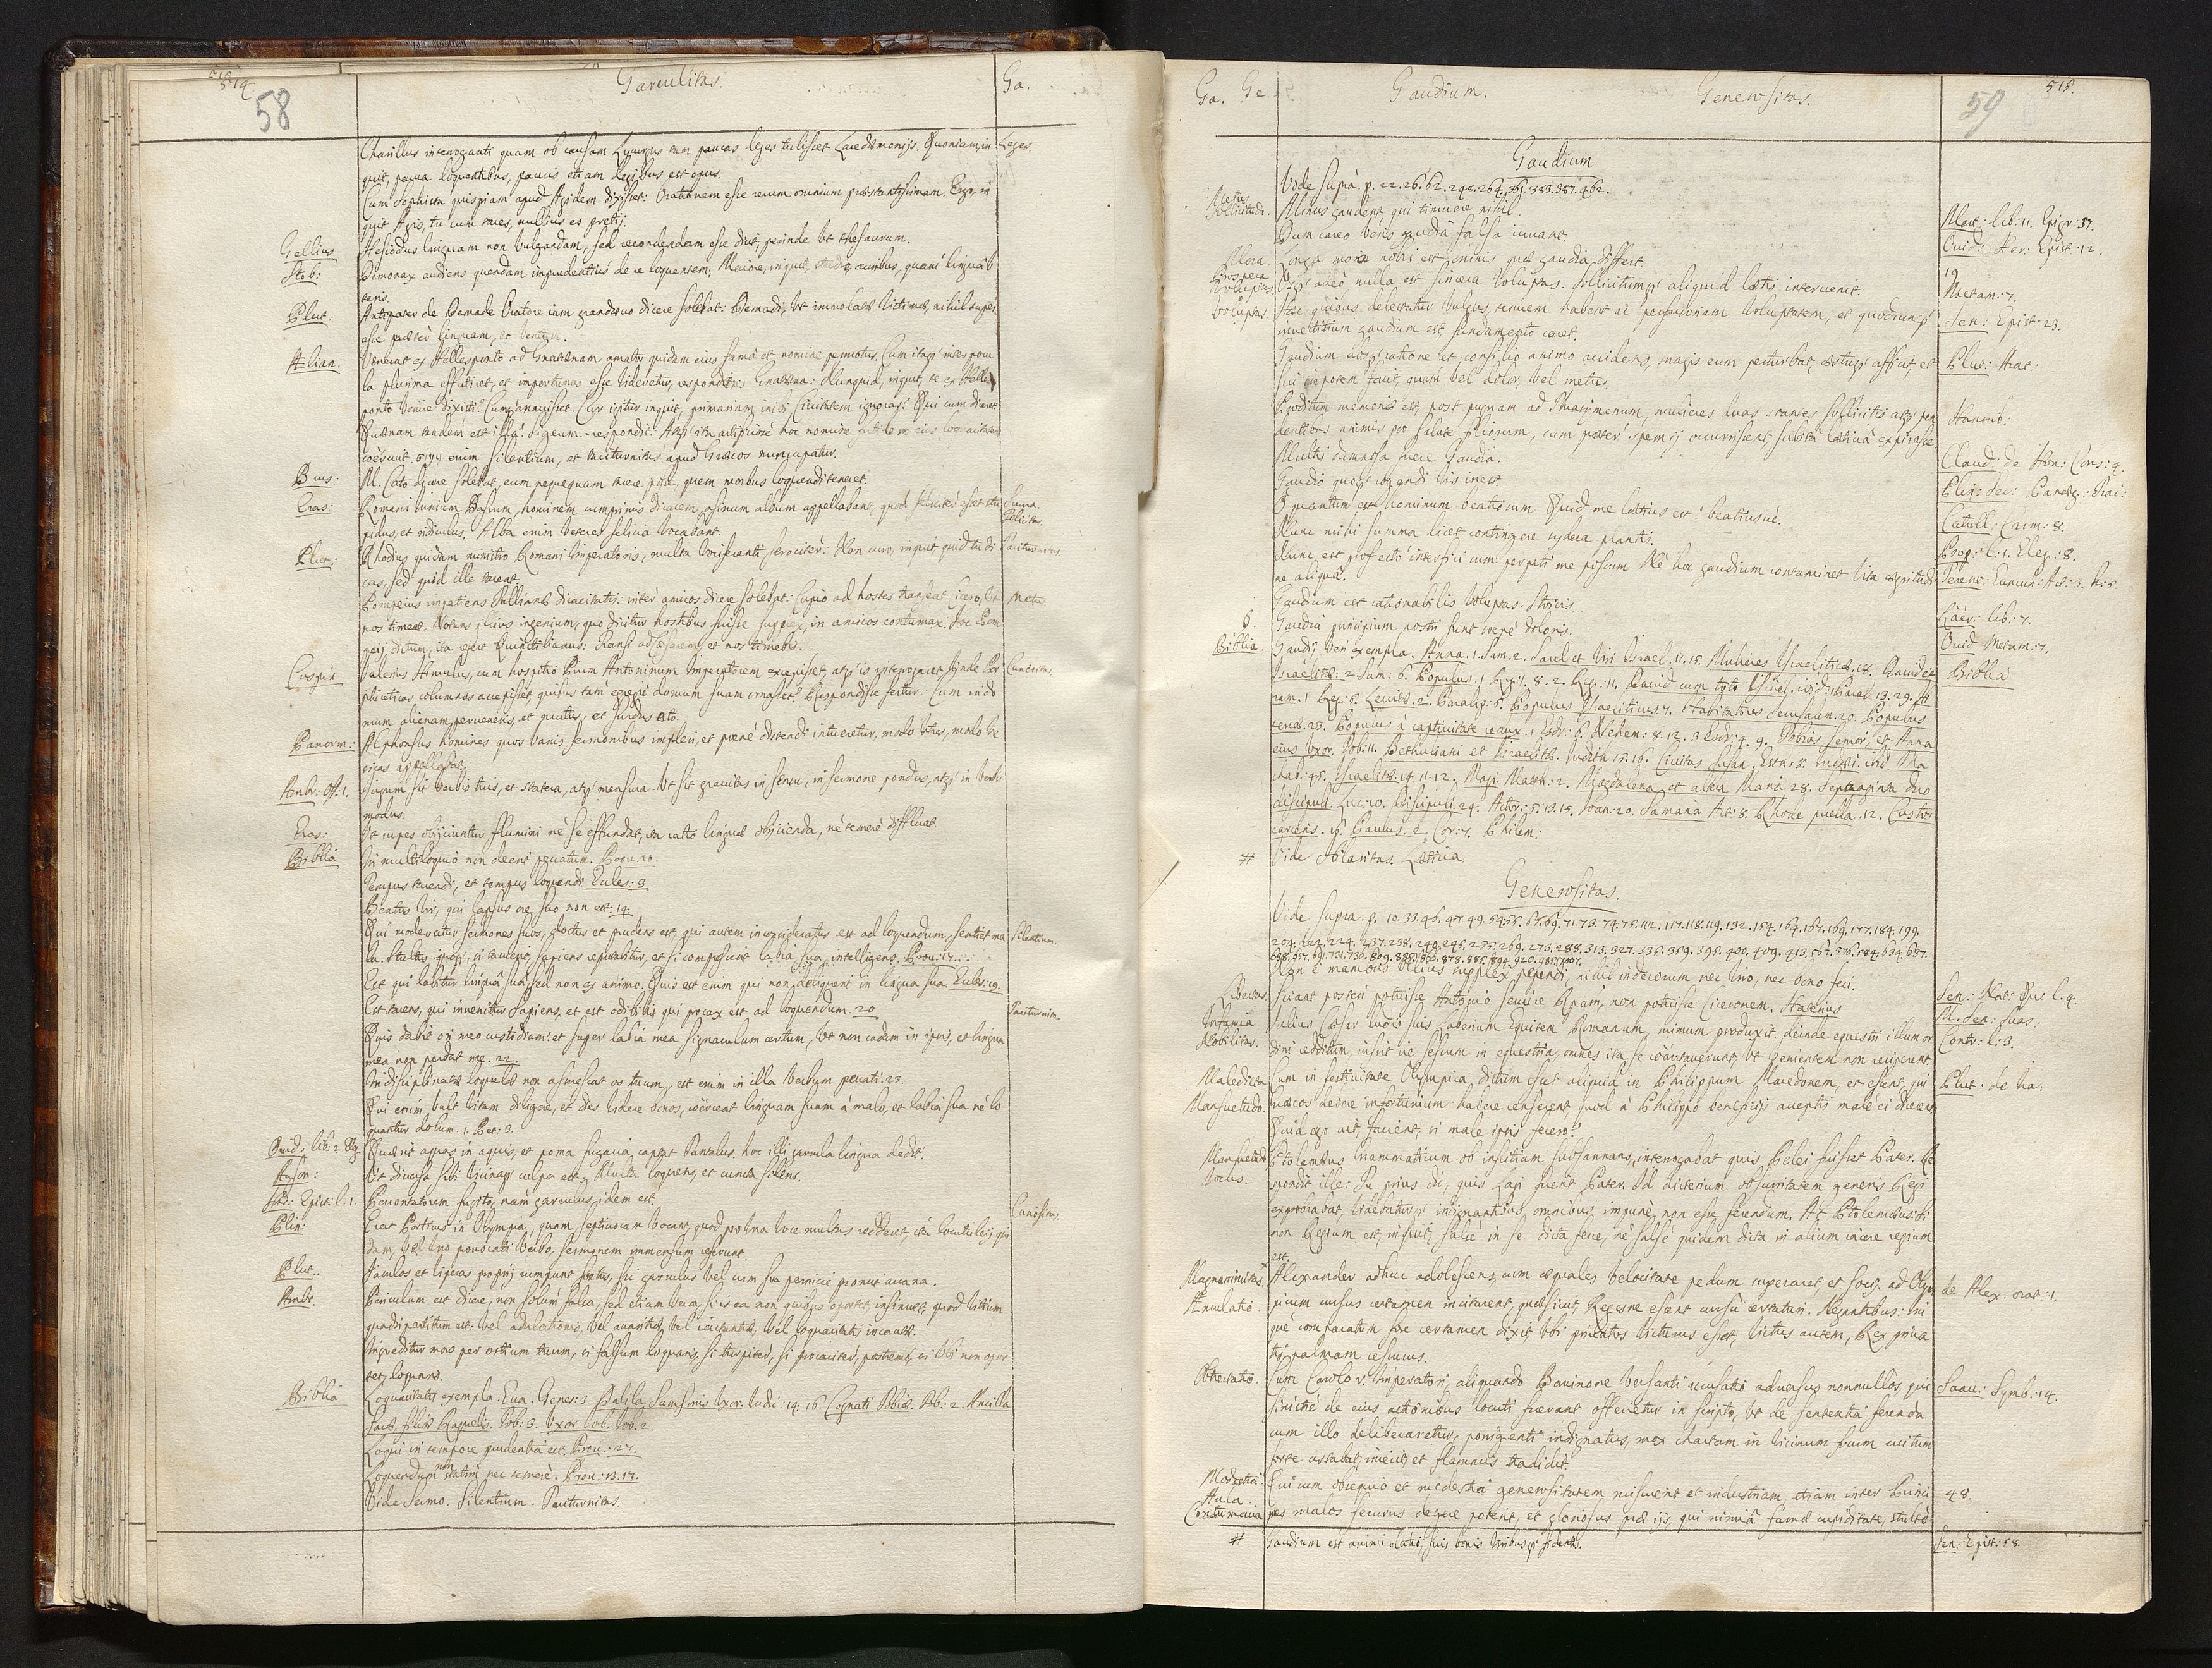 514.
58
Garrulitas.
Ga.
Charillus interroganti quam ob causam Lycurgus tam paucas leges tulisset Lacedæmonijs. Quoniam, in
Leges.
quit, pauca loquentibus, paucis etiam legibus est opus.
Cum Sophista quispiam apud Agidem dixisset: Orationem esse rerum omnium præstantissimam. Ergo, in
quit Agis, tu cum taces, nullius es pretij.
Gellius
Hesiodus linguam non vulgandam, sed recondendam esse dixit, perinde ut thesaurum.
Stob:
Demonax audiens quendam impudentius de se loquentem; Maiore, inquit, studio auribus, quam linguâ
teris.
Plut:
Antipater de Demade Oratore iam grandævo dicere solebat: Demadi, ut immolatæ victimæ, nihil super
esse præter linguam, et ventrem.
Ælian.
Venerat ex Hellesponto ad Gnathænam amator quidam eius famâ et nomine permotus. Cum itaq; inter pocu
la plurima effutiret, et importunus esse videretur, respondens Gnathæna: Nunquid, inquit, te ex Helles
ponto venire dixisti? Cum annuisset. Cur igitur inquit, primariam inibi Civitatem ignoras? Qui cum diceret
Quænam tandem est illa? Sigeum respondit. Atq; ita artificiosè hoc nomine futilem eius loquacitatem
coërcuit, σιγη enim silentium, et taciturnitas apud Græcos nuncupatur.
Bus:
M. Cato dicere solebat, eum nequaquam tacere posse, quem morbus loquendi teneret.
Eras:
Romani Iunium Bassum hominem inprimis dicacem, asinum album appellabant, quod stultè esset stu
pidus, et ridiculus. Alba enim veteres felicia vocabant.
Felicitas.
Plut:
Rhodius quidam ministro Romani Imperatoris, multa vociferanti ferociter: Non curo, inquit quid tu di
Taciturnitas.
cas, sed quid ille taceat.
Pompeius impatiens Tullianæ dicacitatis inter amicos dicere solebat: Cupio ad hostes transeat Cicero, ut
Metus.
nos timeat. Notans illius ingenium, quo dicitur hostibus fuisse supplex, in amicos contumax. Hoc Pom
peij dictum, ita effert Quinctilianus: Transi ad Cæsarem, et nos timebis.
Cuspin
Valerius Homulus, cum hospitio Pium Antoninum Imperatorem excepisset, atq; is interrogaret unde Por
Curiositas.
phireticas columnas accepisset, quibus tam egregiè domum suam ornasset? Respondisse fertur: Cum in do
mum alienam perveneris, et mutus, et surdus esto.
Panorm:
Alphonsus homines quos vanis sermonibus impleri, et pænè distendi intueretur, modo utres, modo ve
sicas appellabat.
Ambr: Off: 1.
Iugum sit verbis tuis, et statera, atq; mensura. Ut sit gravitas in sensu, in sermone pondus, atq; in verbis
modus.
Eras:
Ut rupes obijciuntur flumini nè se effundat, ita ratio linguæ obijcienda, nè temerè diffluat.
Biblia
In multiloquio non deerit peccatum. Prov. 10.
Tempus tacendi, et tempus loquendi. Eccles: 3
Beatus vir, qui lapsus ore suo non est. 14.
Qui moderatur sermones suos, doctus et prudens est, qui autem inconsideratus est ad loquendum, sentiet ma
Silentium.
la. Stultus quoq; si tacuerit, sapiens reputabitur, et si compresserit labia sua, intelligens. Prov: 17.
Est qui labitur linguâ suâ, sed non ex animo. Quis est enim qui non deliquerit in lingua sua. Eccles: 19.
Est tacens, qui invenitur sapiens, et est odibilis qui procax est ad loquendum. 20
Taciturnitas.
Quis dabit ori meo custodiam? et super labia mea signaculum certum, ut non cadam in ipsis, et lingua
mea non perdat me. 22.
Indisciplinatæ loquelæ non assuescat os tuum, est enim in illa verbum peccati. 23.
Qui enim vult vitam diligere, et dies videre bonos, coërceat linguam suam à malo, et labia sua nè lo
quantur dolum. 1. Pet: 3.
Ouid: lib: 2. Eleg
Quærit aquas in aquis, et poma fugacia captat Tantalus, hoc illi garrula lingua dedit.
Auson:
Ut diversa sibi vicinaq; culpa est. Multa loquens, et cuncta silens.
Hor: Epist: l. 1.
Percontatorem fugito, nam garrulus idem est.
Plin:
Erat Porticus in Olympia, quam septivocam vocant, quod pro una voce multas redderet, ita loculeij qui
dam, vel uno provocati verbo, sermonem immensum referunt.
Plut.
Iaculos et viperas proprij rumpunt fœtus, sic garrulus vel cum sua pernicie promit arcana.
Ambr.
Periculum est dicere, non solum falsa, sed etiam vera, si is ea non quibus oportet, insinuet, quod vitium
quadripartitum est: vel adulationis, vel avaritiæ, vel iactantiæ, vel loquacitatis incautæ.
Ingreditur mors per ostium tuum, si falsum loquaris, si turpiter, si procaciter, postremò, si ubi non opor
tet, loquaris.
Biblia
Loquacitatis exempla. Eva. Genes: 3 Dalila, Samsonis Uxor. Iudic: 14. 16. Cognati Tobiæ. Tob: 2. Ancilla
Saræ filiæ Raguelis. Tob: 3. Uxor Iob. Iob. 2.
Loqui in tempore prudentia est. Prov: 27.
Loquendum non statim nec temerè. Prov: 13. 17.
Vide Sermo. Silentium. Taciturnitas.
Ga. Ge.
Gaudium.
Generositas.
515.
59
Gaudium
Vide suprà. p. 22. 26. 62. 248. 264. 365. 383. 387. 462.
Metus
Sollicitudo.
Minus gaudent, qui timuere nihil.
Mart: lib: 11. Epigr: 37.
Dum careo veris gaudia falsa iuvant.
Ouid: Her: Epist: 12.
Mora.
Longa mora nobis est, omnis quæ gaudia differt.
19
Prospera
Voluptas.
Usq; adeò nulla est sincera voluptas. Sollicitumq; aliquid lætis intervenit.
Metam: 7.
Voluptas.
Hæc quibus delectatur vulgus, tenuem habent ac perfusoriam voluptatem, et quodcunq;
Sen: Epist: 23.
invectitium gaudium est fundamento caret.
Gaudium absq; ratione et consilio animo accidens, magis eum perturbat, æstuq; afficit, et
Plut: Arat:
sui impotem facit, quàm vel dolor, vel metus.
Proditum memoriæ est, post pugnam ad Thrasymenum, mulieres duas stantes sollicitis atq; pen
Hannib:
dentibus animis pro salute filiorum, cum præter spem ij occurrissent subita lætitia expirasse
Multis damnosa fuere Gaudia.
Claud: de Hon: Cons: 4.
Gaudio quoq; cogendi vis inest.
Plin: Sec: Paneg: Trai:
O quantum est hominum beatiorum Quid me lætius est? beatiusue.
Catull: Carm: 8.
Nunc mihi summa licet contingere sydera plantis.
Prop: l: 1. Eleg: 8.
Nunc est profectò interfici cum perpeti me possum Nè hoc gaudium contaminet vita ægritudi
Terent: Eunuch: Act: 3. s: 5.
ne aliqua.
Gaudium est rationabilis voluptas. Stoicis.
Laër: lib: 7.
6.
Gaudia principium nostri sunt sæpè doloris.
Ouid Metam: 7.
Biblia.
Gaudij veri exempla. Anna. 1. Sam. 2. Saul et viri Israel. 11. 15. Mulieres Israeliticæ. 18. Dauid et
Biblia
Israelitæ: 2 Sam: 6. Populus. 1 Reg: 1. 8. 2. Reg: 11.
ram. 1 Reg: 5. Levitæ. 2. Paralip: 5. Populus Israeliticus. 7. Habitatores Ierusalem. 20. Populus
terræ. 23. Populus à captivitate redux. 1 Esdr: 6. Nehem: 8. 12. 3 Esdr: 4. 9. Tobias senior, et Anna
eius Uxor. Tob: 11. Bethuliani et Israelitæ. Iudith 15. 16. Civitas Susan. Esth: 8.
Israelitæ. 14. 11. 12. Magi. Matth: 2. Magdalena et altera Maria 28. Septuaginta duo
discipuli. Luc: 10. Discipuli. 24. Actor: 5. 13. 15. Ioan: 20. Samaria Act: 8. Rhode puella. 12. Custos
carceris. 16. Paulus. 2. Cor: 7. Philem:
#
Vide Hilaritas. Lætitia.
Generositas.
Vide supra. p. 10. 33. 46. 47. 49. 54. 55. 65. 69. 71. 73. 74. 75. 112. 117. 118. 119. 132. 154. 164. 167. 169. 177. 184. 199.
Non è manibus ullius supplex pependi, nihil indecorum nec viro, nec bono feci.
Sen: Nat: Quæ: l. 4.
Libertas.
Sciant posteri potuisse Antonio servire Rempub:, non potuisse Ciceronem. Haterius
M. Sen: Suas:
Infamia
Nobilitas.
Iulius Cæsar ludis suis Laberium Equitem Romanum, mimum produxit, deinde equestri illum or
Contr: l: 3.
dini redditum, iussit ire sessum in equestria, omnes ita se coarctaverunt, ut venientem non reciperent.
Maledicta
Cum in festivitate Olympica, dictum esset aliquid in Philippum Macedonem, et essent, qui
Plut: de Ira:
Mansuetudo.
Græcos debere infortunium habere censerent quod à Philippo beneficijs acceptis malè ei dicerent
Quid ergo ait, facient, si malè ipsis fecero?
Mansuetudo
Iocus.
Ptolemæus Grammaticum ob inscitiam subsannans, interrogabat quis Pelei fuisset Pater. Re
spondit ille: Tu prius dic, quis Lagi fuerit Pater. Id dicterium obscuritatem generis Regi
exprobrabat, videbaturq; indignantibus omnibus, impunè non esse ferendum. At Ptolemæus: Si
non Regium est, inquit, salsè in se dicta ferre, nè salsè quidem dicta in alium iacere regium
est.
Magnanimitas.
Æmulatio.
Alexander adhuc adolescens, cum æquales velocitate pedum superaret, et socij ad Olym
de Alex: orat: 1.
picum cursus certamen incitarent, quæsivit, Regesne essent cursu certaturi. Negantibus: Ini
què comparatum fore certamen dixit, ubi privatos victurus esset, victus autem, Rex priva
tis palmam cessurus.
Obtrectatio.
Cum Carolo V. Imperatori, aliquando Bavinone versanti accusatio adversus nonnullos, qui
Saav: Symb: 14.
sinistrè de eius actionibus locuti fuerant offerretur in scripto, ut de sententia ferenda
cum illo deliberaretur, porrigenti indignatus, mox chartam in vicinum focum qui tum
forte astabat, iniecit, et flammis tradidit.
Modestia
Aula
Contumacia
Qui cum obsequio et modestia generositatem miscuerit et industriam, etiam inter Princi
48.
pes malos securus degere poterit, et gloriosus præ ijs, qui nimia famæ cupiditate, stultè
#
Gaudium est animi elatio, suis bonis viribusq; fidentis.
Sen: Epist: 58.